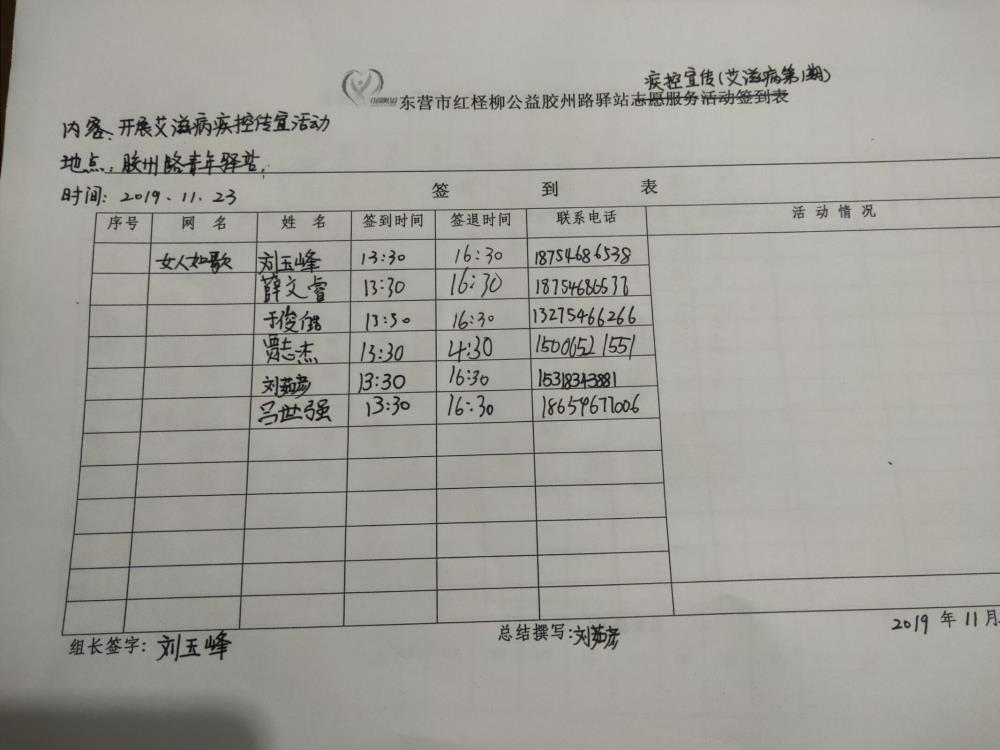 疾控宣传(艾滋病第1期)
东营市红柽柳公益胶州路驿站志愿服务活动签到表
内容、开展艾滋病疾控传宣活动
地点:胶州路青年驿站.
时间: 2019.11.23 签 到 表
序号 网 名 姓 名 签到时间 签退时间 联系电话 活动情况
女人如歌 刘玉峰 13:30 16:30 18754686538
薛文睿 13:30 16:30 18754686538
于俊皓 13:30 16:30 13275466266
贾志杰 13:30 4:30 15006521551
刘茹彦 13:30 16:30 15318343881
吕世强 13:30 16:30 18654671006
组长签字: 刘玉峰 总结撰写:刘茹彦 2019 年 11 月